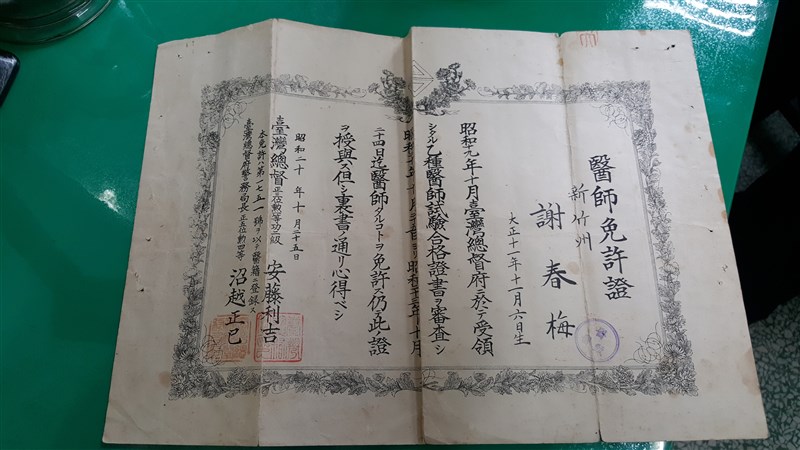 醫師免許證
新竹州
謝春梅
大正十一年十一月六日生
昭和九年十月臺灣總督府ニ於テ受領
シタル乙種醫師試驗合格證書ヲ審査シ
昭和
年十月
二十四日迄醫師タルコトヲ免許仍テ此ノ證
ヲ授與ス但シ裏書ノ通リ心得ベシ
昭和二十年十月二十五日
臺灣總督正三位勲一等功二級 安藤利吉
本免許ハ第一七五一號ヲ以テ醫籍ニ登録ス
臺灣總督府警務局長正五位勲四等 沼越正己